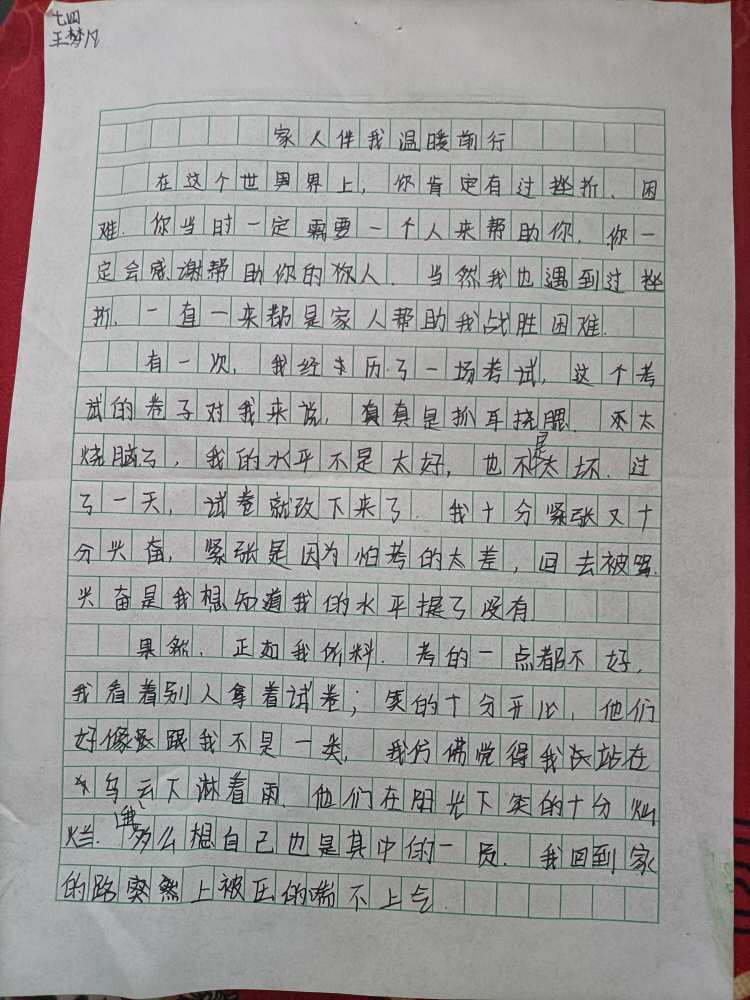 七四
王梦凡
家人伴我温暖前行
在这个世界上，你肯定有过挫折、困
难．你当时一定需要一个人来帮助你．你一
定会感谢帮助你的人．当然我也遇到过挫
折．一直一来都是家人帮助我战胜困难．
有一次，我经历了一场考试，这个考
试的卷子对我来说，真真是抓耳挠腮．太
烧脑了，我的水平不是太好，也不是太坏．过
了一天，试卷就改下来了．我十分紧张又十
分兴奋，紧张是因为怕考的太差，回去被骂．
兴奋是我想知道我的水平提了没有
果然．正如我所料．考的一点都不好，
我看着别人拿着试卷；笑的十分开心，他们
好像跟我不是一类，我仿佛觉得我站在
乌云下淋着雨．他们在阳光下笑的十分灿
烂．我多么想自己也是其中的一员．我回到家
的路突然上被压的喘不上气．